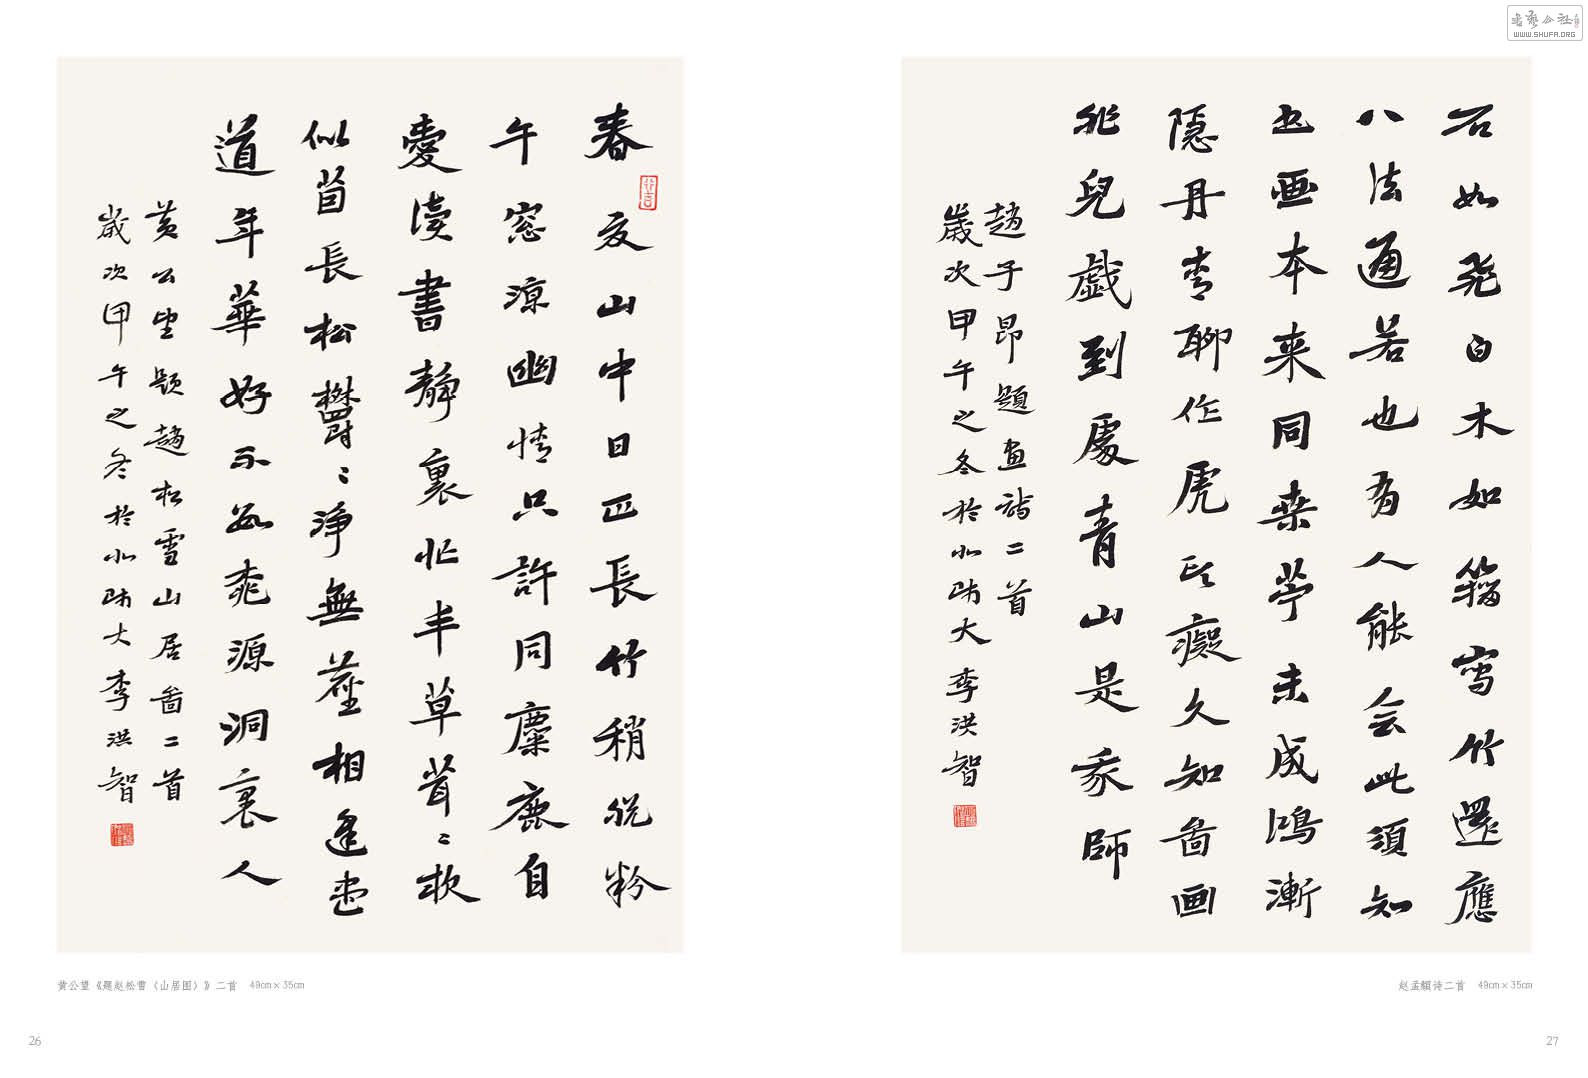 春夏山中日正長竹稍脫粉
午窓涼幽情只許同麋鹿自
愛讀書靜裏忙丰草茸〻軟
似茵長松鬱〻淨無塵相逢盡
道年華好不數桃源洞裏人
黃公望題趙松雪山居圖二首
歲次甲午之冬於北師大李洪智
黄公望《题赵松雪〈山居图〉》二首 49cm×35cm
26
石如飛白木如籀寫竹還應
八法通若也有人能会此須知
书画本来同桑苧未成鴻漸
隱丹青聊作虎頭癡久知啚画
非兒戲到處青山是我師
趙子昂題画詩二首
歲次甲午之冬於北師大李洪智
赵孟頫诗二首 49cm×35cm
27
书艺公社
WWW.SHUFA.ORG